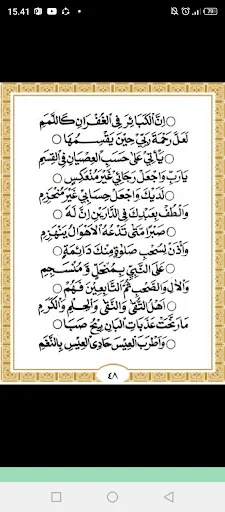 15.41 79
○ إِنَّ الْكَبَائِرَ فِي الْغُفْرَانِ كَاللَّمَمِ
لَعَلَّ رَحْمَةَ رَبِّي حِيْنَ يَقْسِمُهَا ○
○ يَأْتِي عَلَى حَسَبِ الْعِصْيَانِ فِي الْقِسَمِ
يَارَبِّ وَاجْعَلْ رَجَائِي غَيْرَ مُنْعَكِسٍ ○
○ لَدَيْكَ وَاجْعَلْ حِسَابِي غَيْرَ مُنْخَزِمِ
وَالْطُفْ بِعَبْدِكَ فِي الدَّارَيْنِ إِنَّ لَهُ ○
○ صَبْرًا مَتَى تَدْعُهُ الْاَهْوَالُ يَنْهَزِمِ
وَأْذَنْ لِسُحْبِ صَلٰوةٍ مِنْكَ دَائِمَةٍ ○
○ عَلَى النَّبِيِّ بِمُنْهَلٍّ وَمُنْسَجِمِ
وَالْاٰلِ وَالصَّحْبِ ثُمَّ التَّابِعِيْنَ فَهُمْ ○
○ اَهْلُ التُّقَى وَالنَّقَى وَالْحِلْمِ وَالْكَرَمِ
مَارَنَّحَتْ عَذَبَاتِ الْبَانِ رِيْحُ صَبَا ○
○ وَاَطْرَبَ الْعِيْسَ حَادِى الْعِيْسِ بِالنَّغَمِ
٤٨